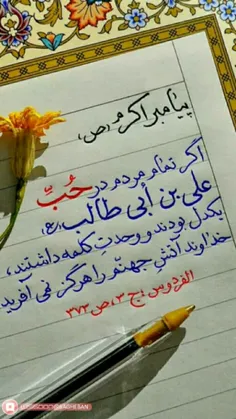 پیامبر اکرم (ص)
اگر تمام مردم در حُبِّ
علی بن أبی طالب (ع)
یکدل بودند و وحدتِ کلمه داشتند،
خداوند آتشِ جهنّم را هرگز نمی آفرید
الفردوس، ج ۳، ص ۳۷۳